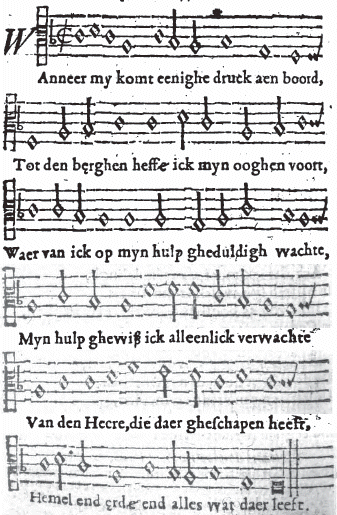 WAnneer my komt eenighe druck aen boord,
Tot den berghen heffe ick myn ooghen voort,
Waer van ick op myn hulp gheduldigh wachte,
Myn hulp ghewiß ick alleenlick verwachte
Van den Heere, die daer gheschapen heeft,
Hemel end erde end alles wat daer leeft.